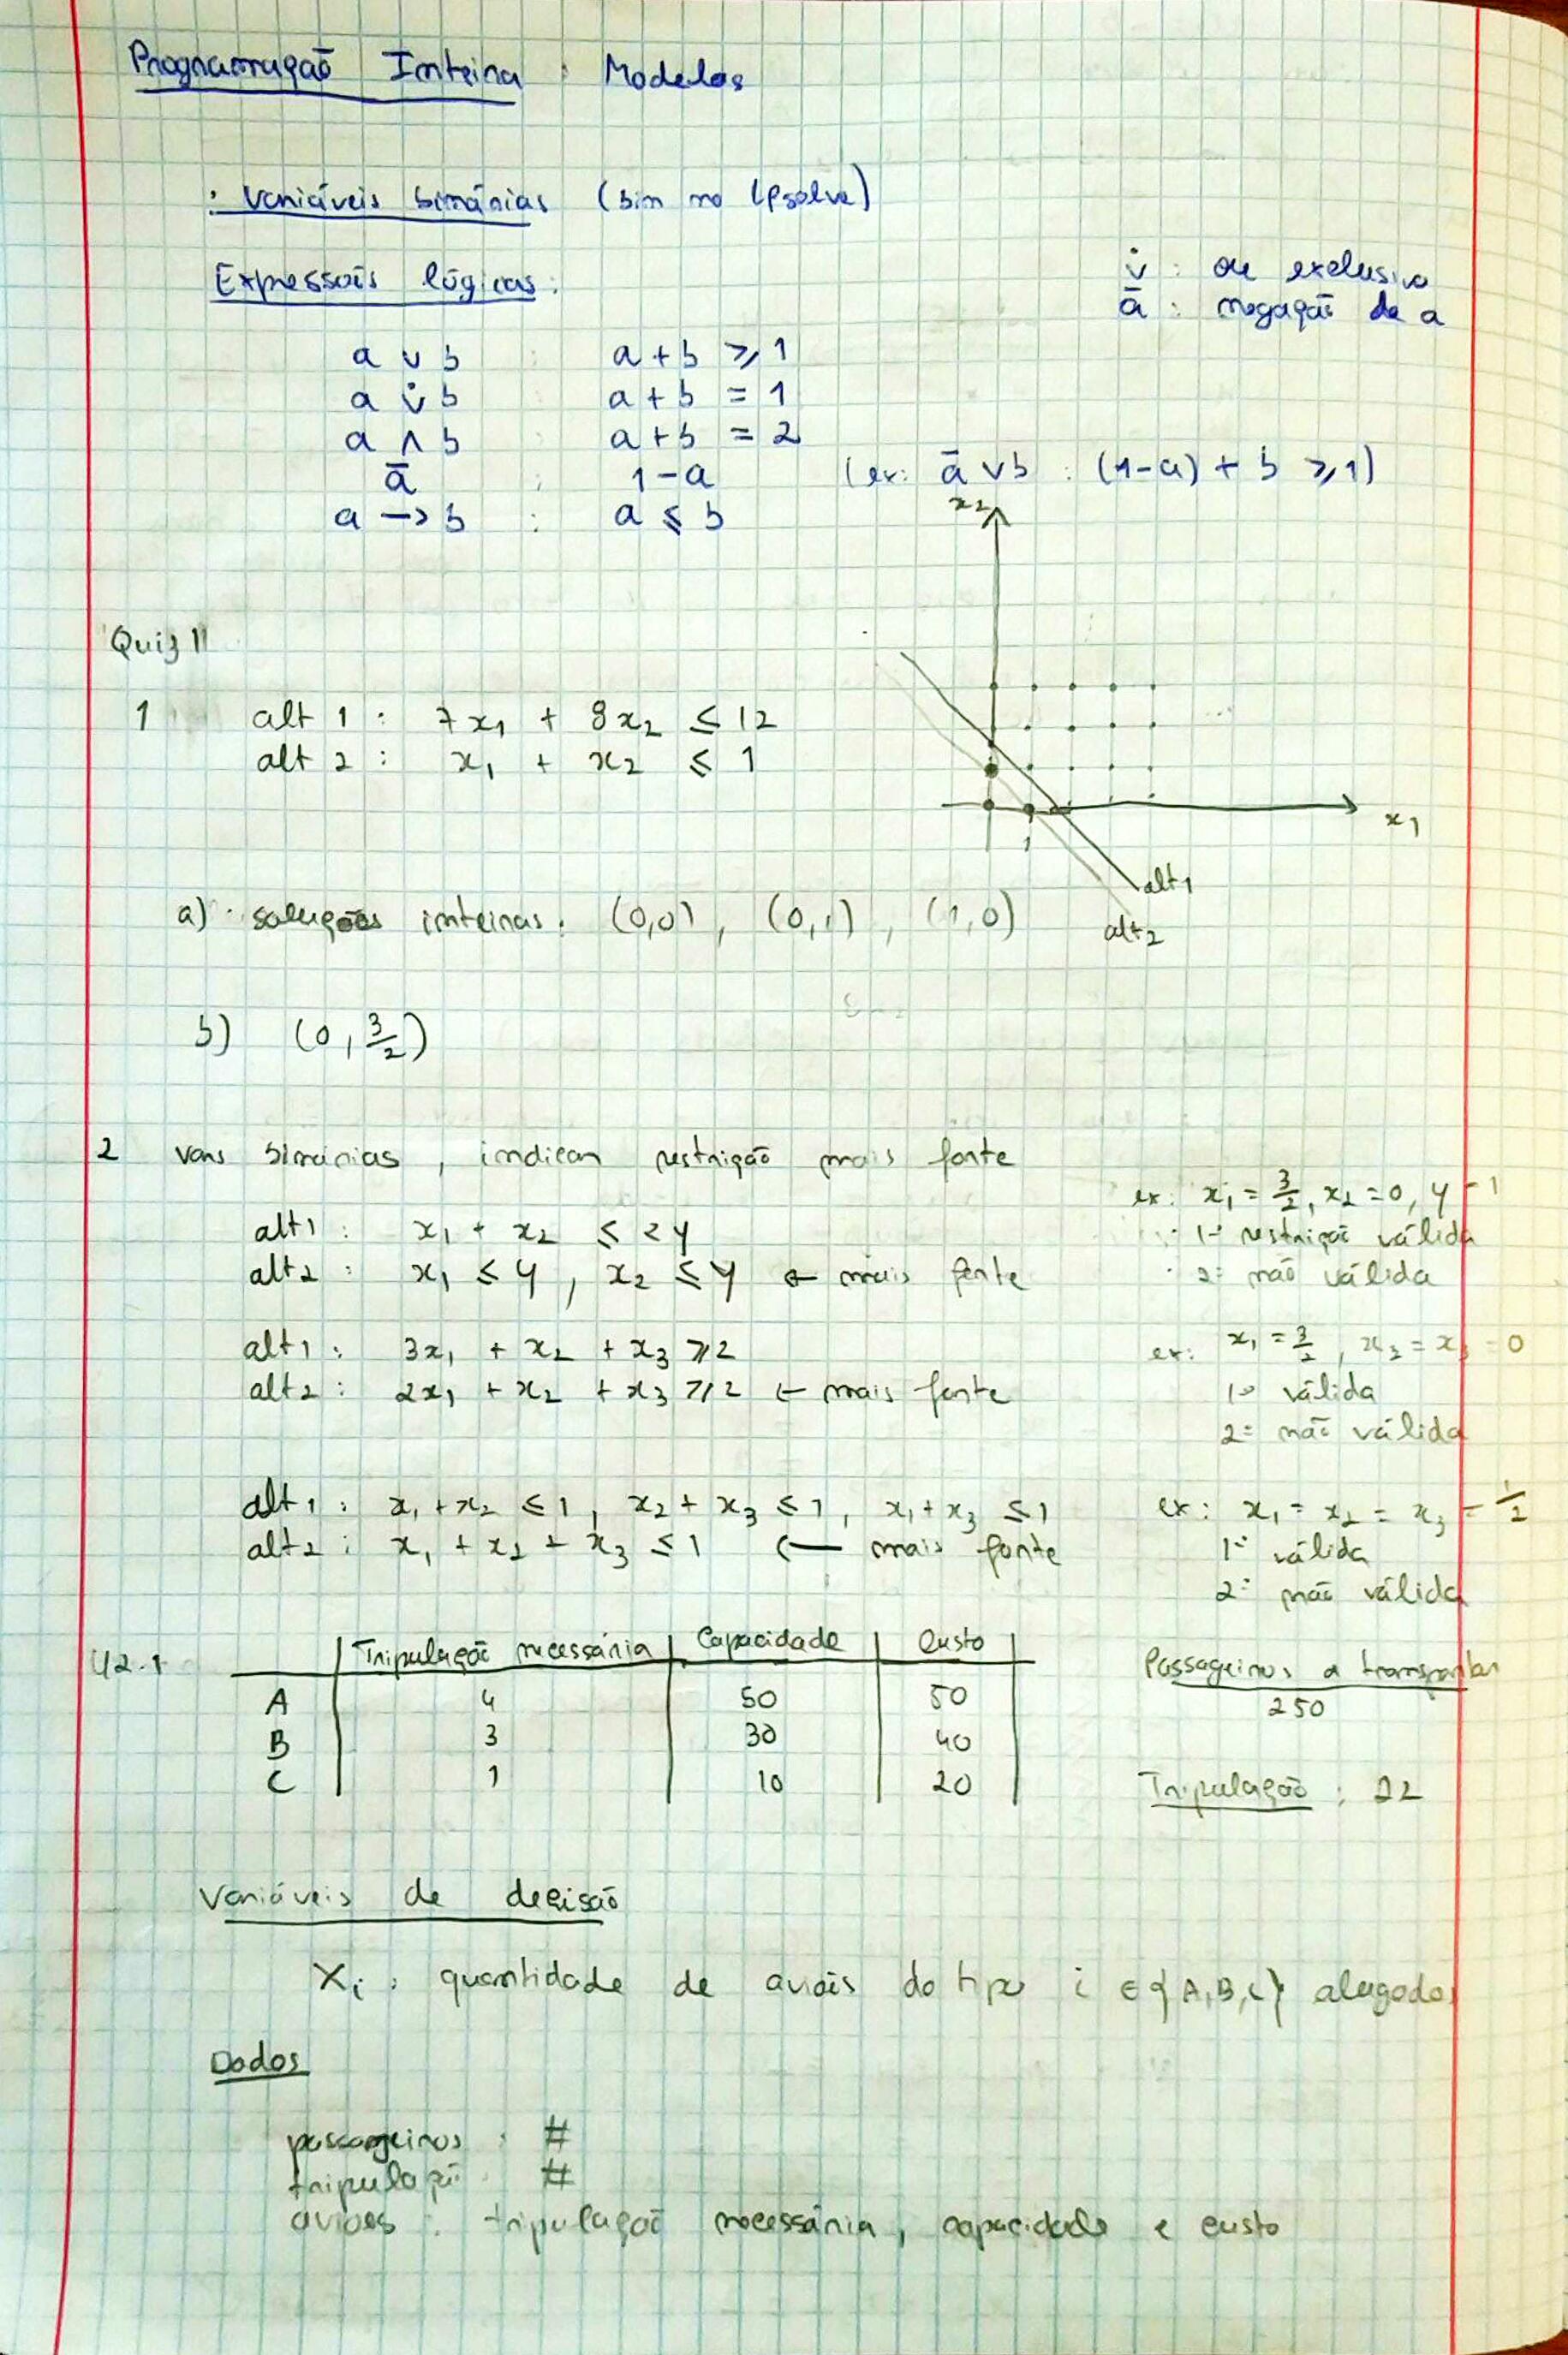 Programação Inteira : Modelos
· Variáveis binárias (bin no lpsolve)
Expressões lógicas:
v̇ : ou exclusivo
ā : negação de a
a ∨ b : a + b ≥ 1
a v̇ b a + b = 1
a ∧ b : a + b = 2
ā : 1-a (ex: ā ∨ b : (1-a) + b ≥ 1)
a -> b : a ≤ b
x2
Quiz 11
1 alt 1 : 7x1 + 8x2 ≤ 12
alt 2 : x1 + x2 ≤ 1
x1
1
alt1
alt2
a) soluções inteiras: (0,0), (0,1), (1,0)
b) (0, 3/2)
2 vars binárias, indicar restrição mais forte
alt1 : x1 + x2 ≤ 2y
alt2 : x1 ≤ y, x2 ≤ y ← mais forte
ex: x1 = 3/2, x2 = 0, y = 1
1ª restrição válida
2ª não válida
alt1 : 3x1 + x2 + x3 ≥ 2
alt2 : 2x1 + x2 + x3 ≥ 2 ← mais forte
ex: x1 = 3/2, x2 = x3 = 0
1ª válida
2ª não válida
alt1 : x1 + x2 ≤ 1, x2 + x3 ≤ 1, x1 + x3 ≤ 1
alt2 : x1 + x2 + x3 ≤ 1 ← mais forte
ex: x1 = x2 = x3 = 1/2
1ª válida
2ª não válida
42.1 Tripulação necessária Capacidade Custo
A 4 50 50
B 3 30 40
C 1 10 20
Passageiros a transportar
250
Tripulação : 22
Variáveis de decisão
Xi : quantidade de aviões do tipo i ∈ {A,B,C} alugados
Dados
passageiros : #
tripulação : #
aviões : tripulação necessária, capacidade e custo